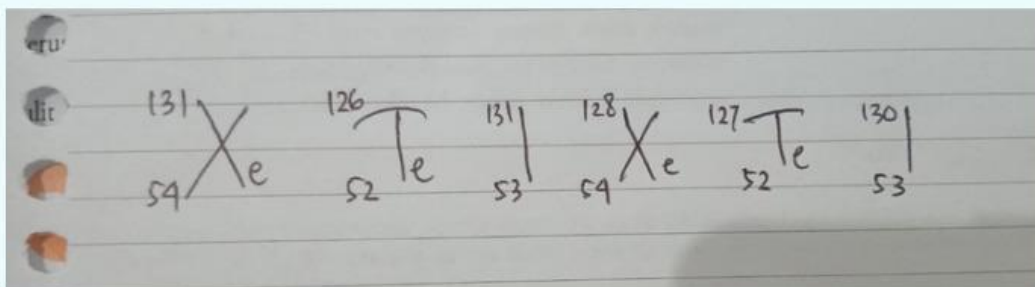 eru
dit
131 54 Xe 126 52 Te 131 53 I 128 54 Xe 127 52 Te 130 53 I